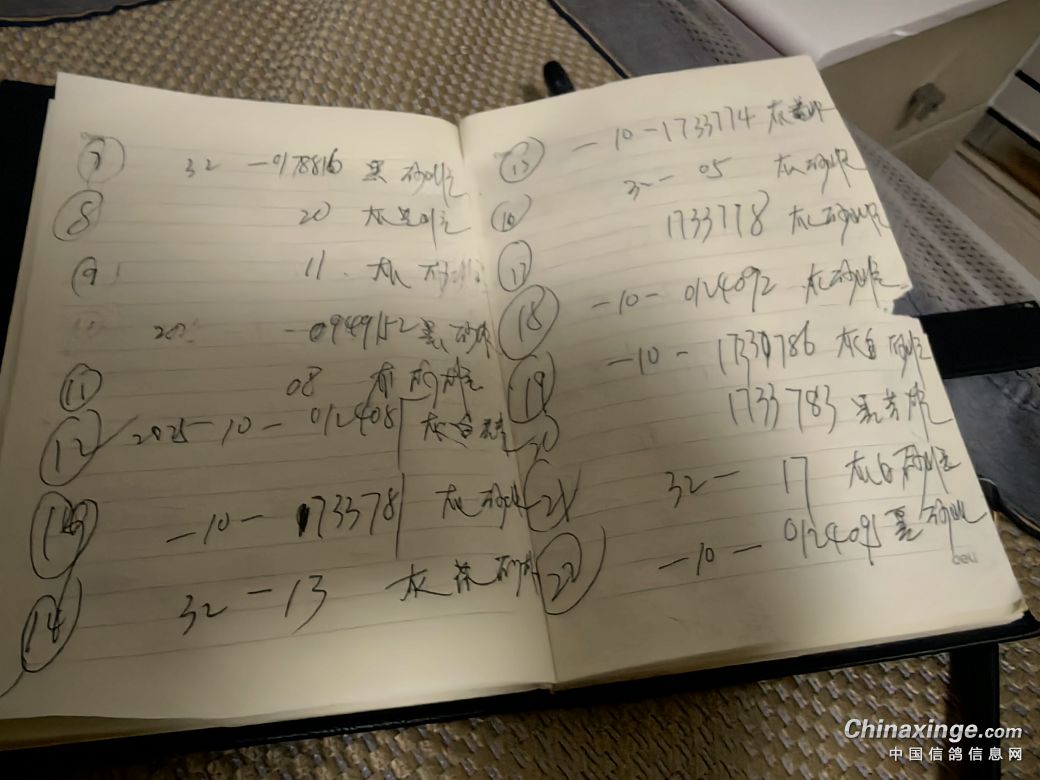 ⑦ 32 —0178816 黑 砂眼
⑧ 20 灰 眼
⑨ 11 灰 砂眼
202 —0949152 黑 砂眼
⑪ 08 砂眼
⑫ 2025—10— 012408 灰白
—10— 1733781 灰 砂眼
⑭ 32 —13 灰 砂眼
⑮ —10—1733774 灰黄眼
⑯ 32— 05 灰砂眼
⑰ 1733778 灰砂眼
⑱ —10— 0124092 灰砂眼
⑲ —10— 786 灰白 砂眼
⑳ 1733783 黑黄眼
㉑ 32— 17 灰白砂眼
㉒ —10— 0124095 黑 砂眼
deli
Chinaxinge.com
中国信鸽信息网